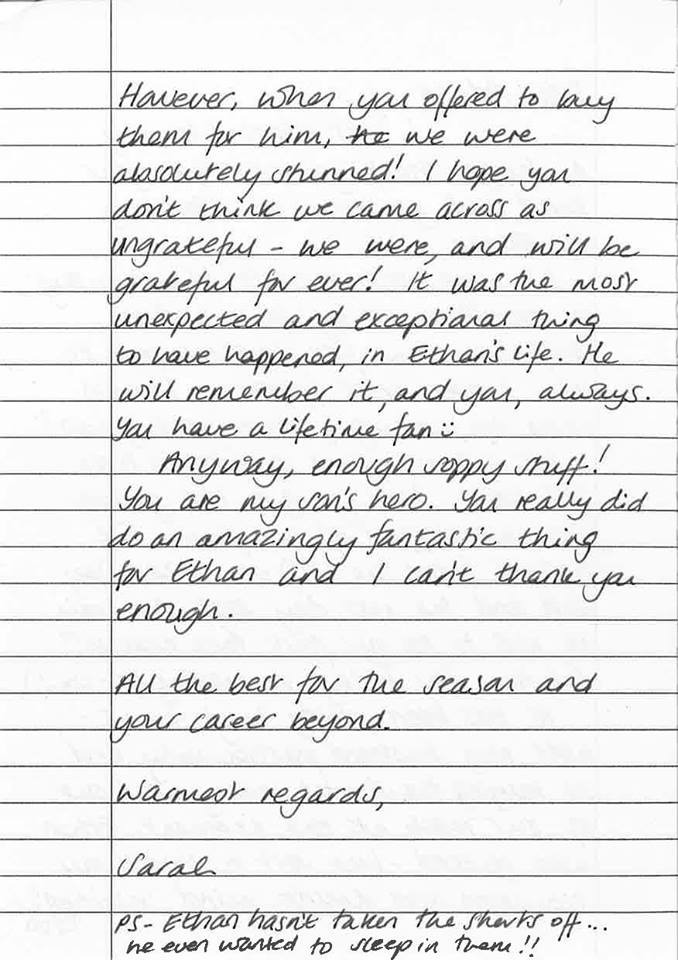 However, when you offered to buy
them for him, he we were
absolutely stunned! I hope you
don't think we came across as
ungrateful - we were, and will be
grateful for ever! It was the most
unexpected and exceptional thing
to have happened, in Ethan's life. He
will remember it, and you, always.
You have a lifetime fan☺
Anyway, enough soppy stuff!
You are my son's hero. You really did
do an amazingly fantastic thing
for Ethan and I can't thank you
enough.
All the best for the season and
your career beyond.
Warmest regards,
Sarah
PS- Ethan hasn't taken the shorts off...
he even wanted to sleep in them!!